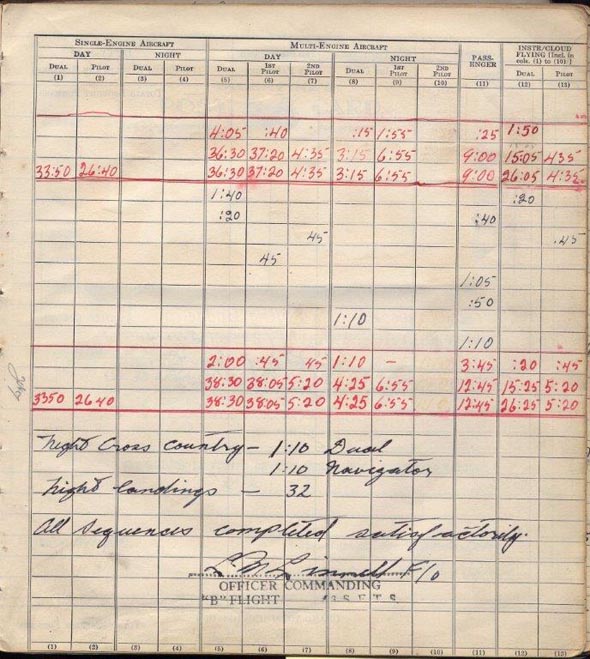 SINGLE-ENGINE AIRCRAFT MULTI-ENGINE AIRCRAFT PASS-ENGER INSTR/CLOUD FLYING [Incl. in cols. (1) to (10).]
DAY NIGHT DAY NIGHT
DUAL PILOT DUAL PILOT DUAL 1ST PILOT 2ND PILOT DUAL 1ST PILOT 2ND PILOT DUAL PILOT
(1) (2) (3) (4) (5) (6) (7) (8) (9) (10) (11) (12) (13)
4:05 :40 :15 1:55 :25 1:50
36:30 37:20 4:35 3:15 6:55 9:00 15:05 4 35
33:50 26:40 36:30 37:20 4:35 3:15 6:55 9:00 26:05 4:35
1:40 :20
:20 :40
45 :45
45
1:05
:50
1:10
1:10
2:00 :45 45 1:10 – 3:45 :20 :45
38:30 38:05 5:20 4:25 6:55 12:45 15:25 5:20
3350 26 40 38:30 38:05 5:20 4:25 6:55 12:45 26:25 5:20
Night Cross Country – 1:10 Dual
1:10 Navigator
Night landings – 32
All Sequences completed satisfactorily.
F/O
OFFICER COMMANDING
"B" FLIGHT S.F.T.S.
(1) (2) (3) (4) (5) (6) (7) (8) (9) (10) (11) (12) (13)